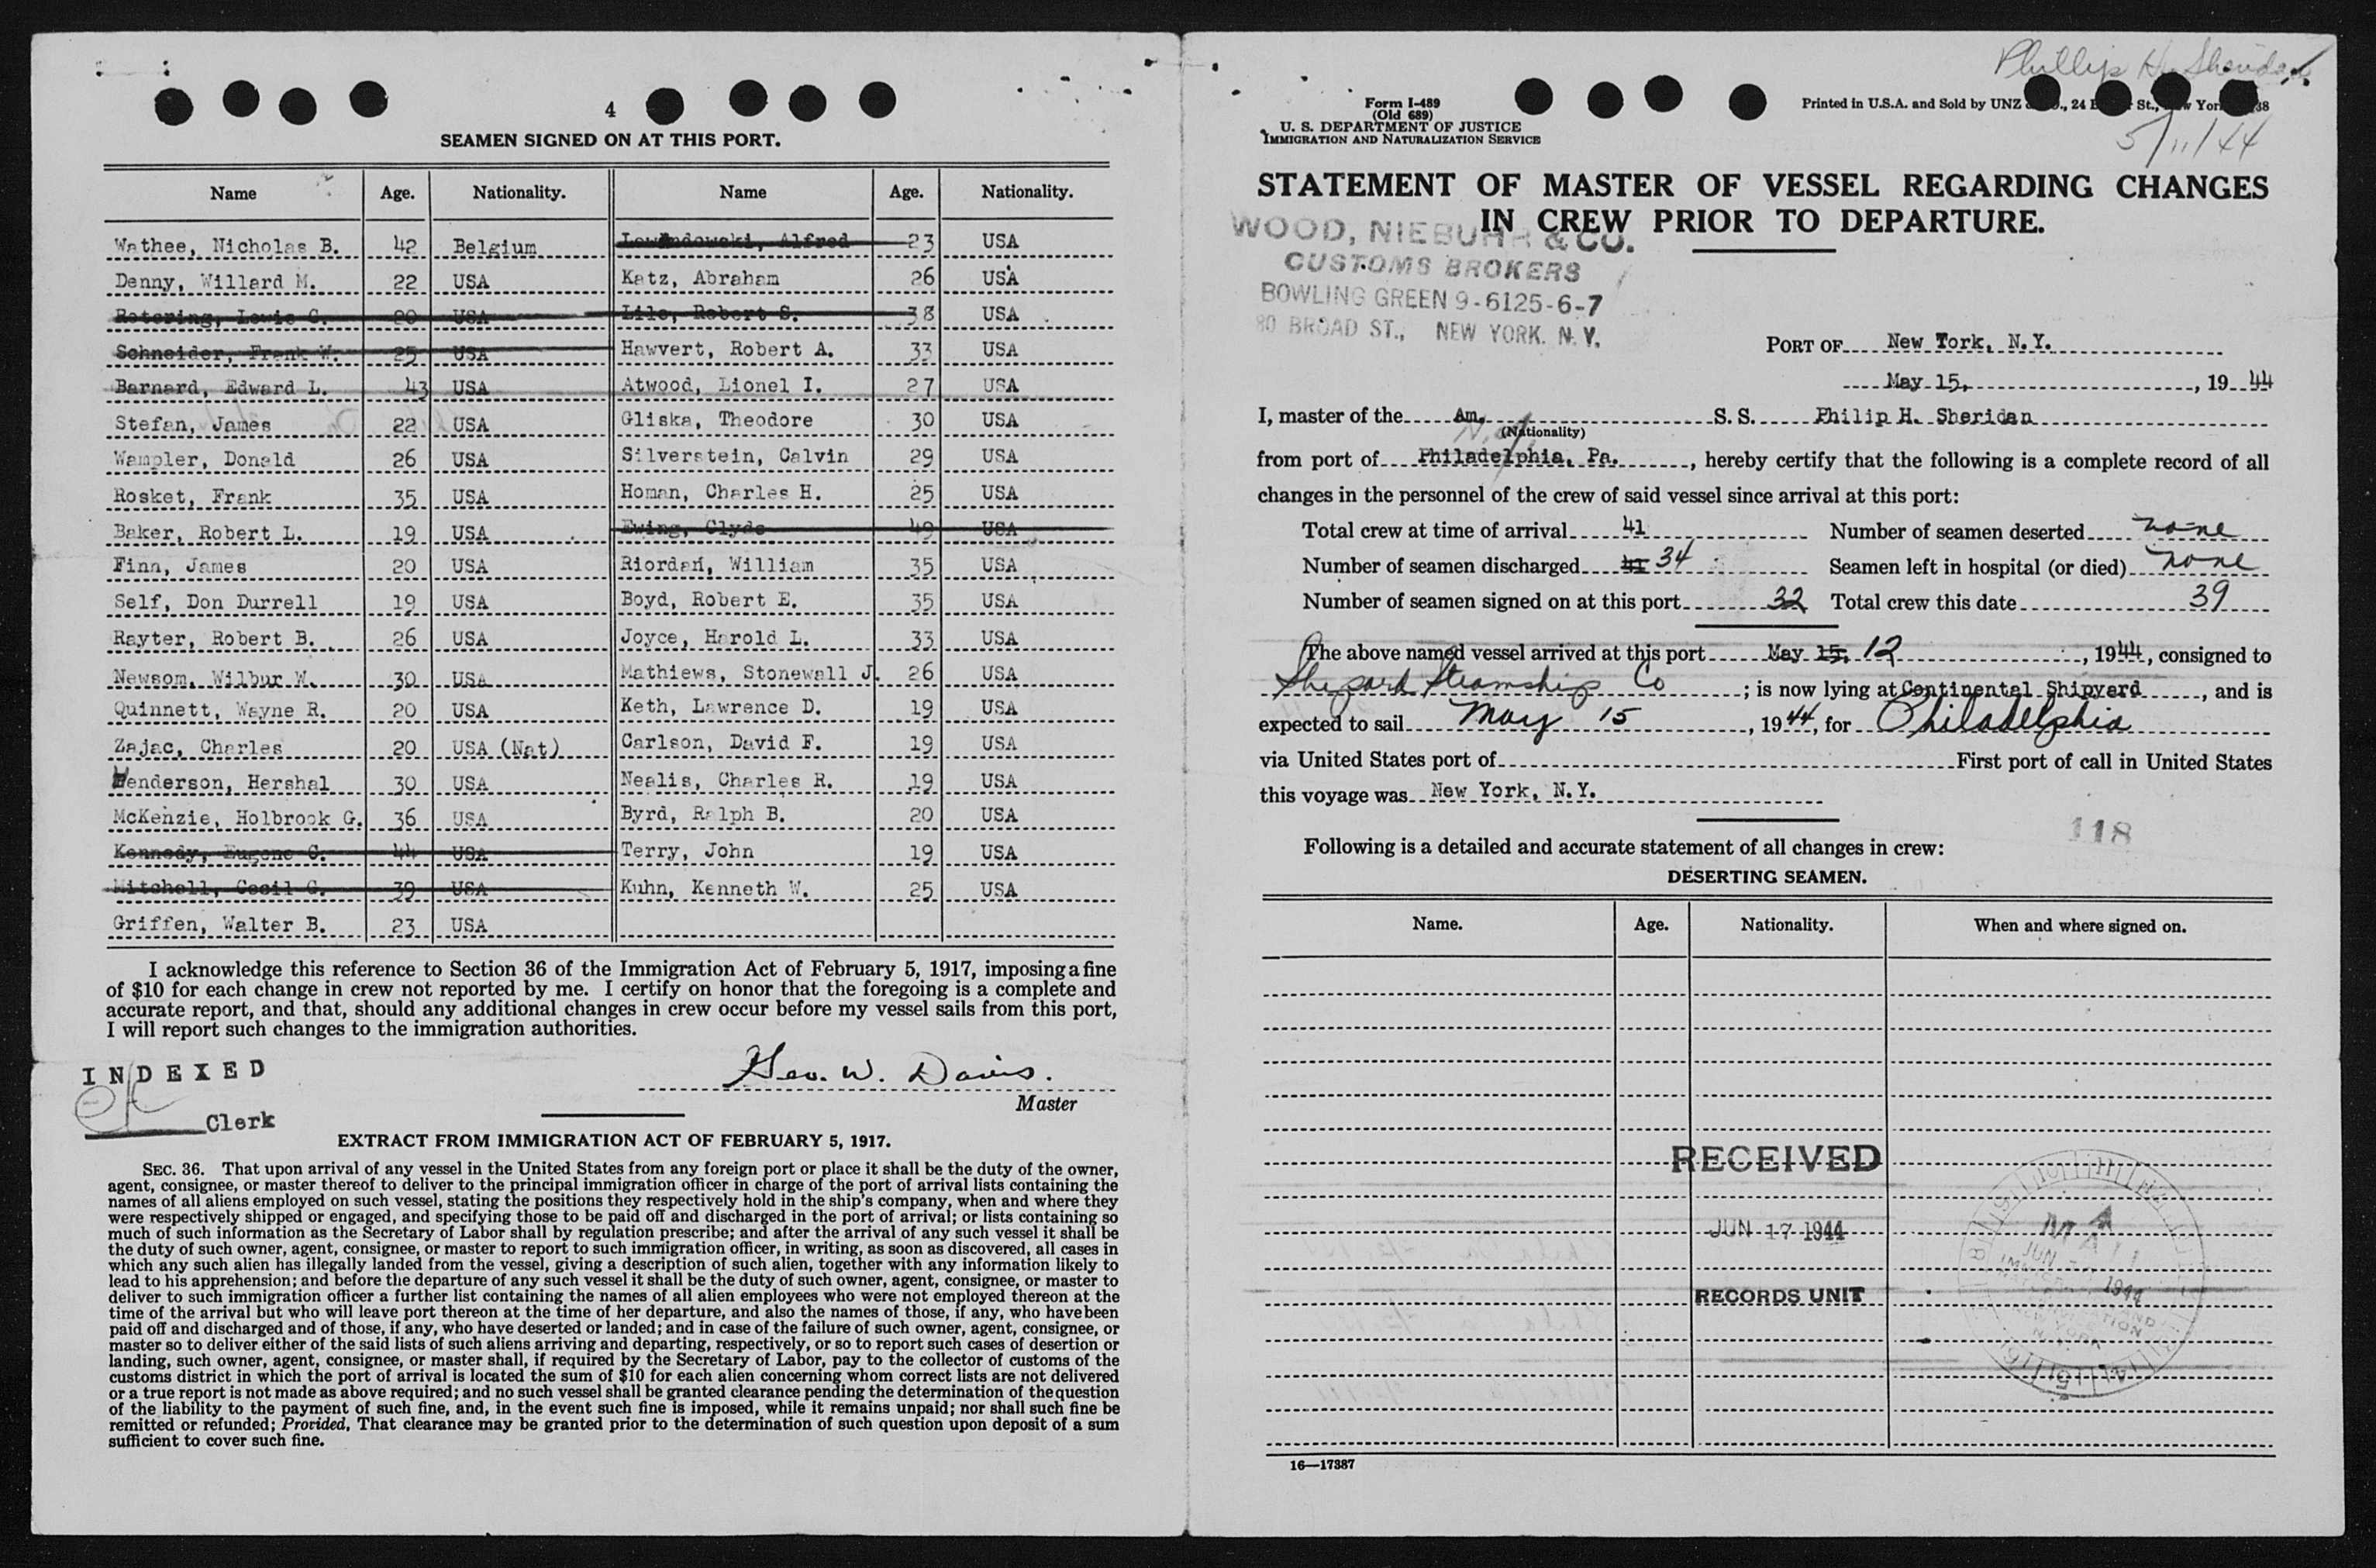 4
SEAMEN SIGNED ON AT THIS PORT.
Name Age. Nationality. Name Age. Nationality.
Wathee, Nicholas B. 42 Belgium Lewandowski, Alfred 23 USA
Denny, Willard M. 22 USA Katz, Abraham 26 USA
Retering, Lewis C. 20 USA Lile, Robert S. 38 USA
Schneider, Frank W. 25 USA Hawvert, Robert A. 33 USA
Barnard, Edward L. 43 USA Atwood, Lionel I. 27 USA
Stefan, James 22 USA Gliska, Theodore 30 USA
Wampler, Donald 26 USA Silverstein, Calvin 29 USA
Rosket, Frank 35 USA Homan, Charles H. 25 USA
Baker, Robert L. 19 USA Ewing, Clyde 49 USA
Finn, James 20 USA Riordan, William 35 USA
Self, Don Durrell 19 USA Boyd, Robert E. 35 USA
Rayter, Robert B. 26 USA Joyce, Harold L. 33 USA
Newsom, Wilbur W. 30 USA Mathiews, Stonewall J. 26 USA
Quinnett, Wayne R. 20 USA Keth, Lawrence D. 19 USA
Zajac, Charles 20 USA (Nat) Carlson, David F. 19 USA
Henderson, Hershal 30 USA Nealis, Charles R. 19 USA
McKenzie, Holbrook G. 36 USA Byrd, Ralph B. 20 USA
Kennedy, Eugene C. 44 USA Terry, John 19 USA
Mitchell, Cecil G. 39 USA Kuhn, Kenneth W. 25 USA
Griffen, Walter B. 23 USA
I acknowledge this reference to Section 36 of the Immigration Act of February 5, 1917, imposing a fine
of $10 for each change in crew not reported by me. I certify on honor that the foregoing is a complete and
accurate report, and that, should any additional changes in crew occur before my vessel sails from this port,
I will report such changes to the immigration authorities.
INDEXED
Geo. W. Davis.
Master
Clerk
EXTRACT FROM IMMIGRATION ACT OF FEBRUARY 5, 1917.
SEC. 36. That upon arrival of any vessel in the United States from any foreign port or place it shall be the duty of the owner,
agent, consignee, or master thereof to deliver to the principal immigration officer in charge of the port of arrival lists containing the
names of all aliens employed on such vessel, stating the positions they respectively hold in the ship's company, when and where they
were respectively shipped or engaged, and specifying those to be paid off and discharged in the port of arrival; or lists containing so
much of such information as the Secretary of Labor shall by regulation prescribe; and after the arrival of any such vessel it shall be
the duty of such owner, agent, consignee, or master to report to such immigration officer, in writing, as soon as discovered, all cases in
which any such alien has illegally landed from the vessel, giving a description of such alien, together with any information likely to
lead to his apprehension; and before the departure of any such vessel it shall be the duty of such owner, agent, consignee, or master to
deliver to such immigration officer a further list containing the names of all alien employees who were not employed thereon at the
time of the arrival but who will leave port thereon at the time of her departure, and also the names of those, if any, who have been
paid off and discharged and of those, if any, who have deserted or landed; and in case of the failure of such owner, agent, consignee, or
master so to deliver either of the said lists of such aliens arriving and departing, respectively, or so to report such cases of desertion or
landing, such owner, agent, consignee, or master shall, if required by the Secretary of Labor, pay to the collector of customs of the
customs district in which the port of arrival is located the sum of $10 for each alien concerning whom correct lists are not delivered
or a true report is not made as above required; and no such vessel shall be granted clearance pending the determination of the question
of the liability to the payment of such fine, and, in the event such fine is imposed, while it remains unpaid; nor shall such fine be
remitted or refunded; Provided, That clearance may be granted prior to the determination of such question upon deposit of a sum
sufficient to cover such fine.
Phillip H. Sheridan
Form I-489
(Old 689)
U. S. DEPARTMENT OF JUSTICE
IMMIGRATION AND NATURALIZATION SERVICE
Printed in U.S.A. and Sold by UNZ & Co., 24 St., New York 38
5/11/44
STATEMENT OF MASTER OF VESSEL REGARDING CHANGES
IN CREW PRIOR TO DEPARTURE.
WOOD, NIEBUHR & CO.
CUSTOMS BROKERS
BOWLING GREEN 9-6125-6-7
80 BROAD ST., NEW YORK. N. Y.
PORT OF New York, N.Y.
May 15, , 19 44
I, master of the Am. S. S. Philip H. Sheridan
(Nationality)
from port of Philadelphia, Pa. , hereby certify that the following is a complete record of all
changes in the personnel of the crew of said vessel since arrival at this port:
Total crew at time of arrival 41 Number of seamen deserted none
Number of seamen discharged 41 34 Seamen left in hospital (or died) none
Number of seamen signed on at this port 32 Total crew this date 39
The above named vessel arrived at this port May 15, 12 , 1944, consigned to
Shepard Steamship Co ; is now lying at Continental Shipyard , and is
expected to sail May 15 , 1944, for Philadelphia
via United States port of First port of call in United States
this voyage was New York, N.Y.
118
Following is a detailed and accurate statement of all changes in crew:
DESERTING SEAMEN.
Name. Age. Nationality. When and where signed on.
RECEIVED
JUN 17 1944
RECORDS UNIT
MAIL
JUN 1944
16—17387